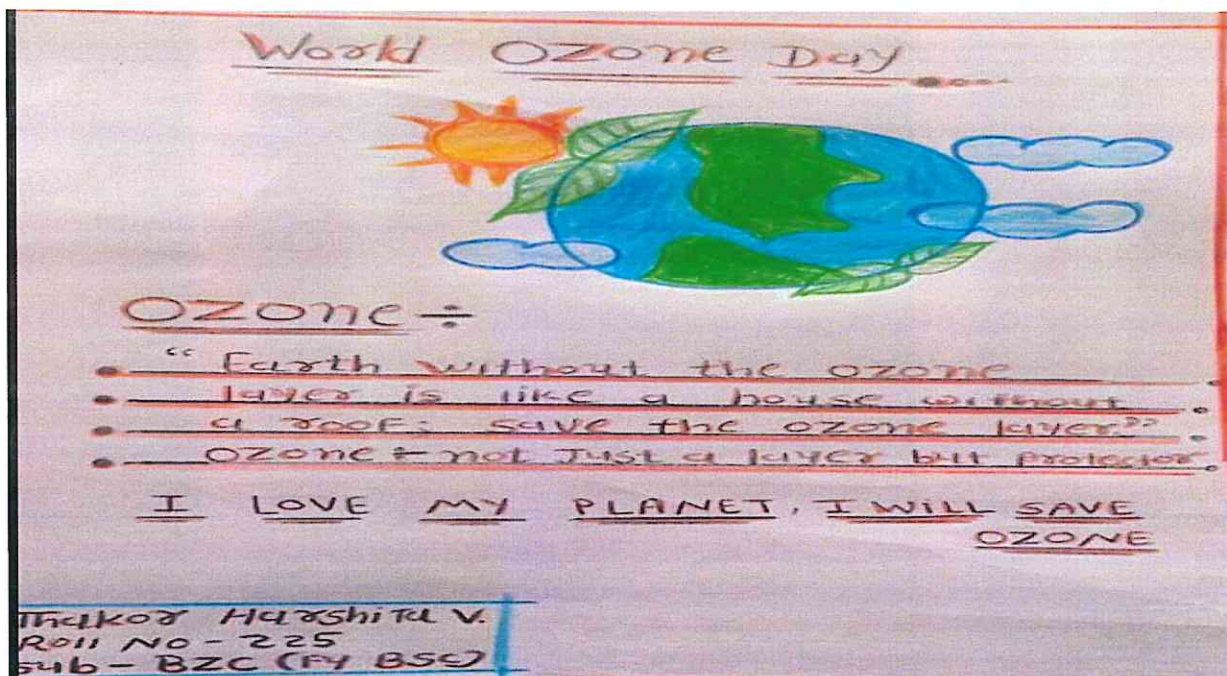 World Ozone Day
Ozone ÷
"Earth without the ozone
layer is like a house without
a roof; save the ozone layer."
Ozone ÷ not Just a layer but protector
I LOVE MY PLANET, I WILL SAVE
OZONE
Thakor Harshita V.
Roll No - 225
Sub - BZC (FY BSC)